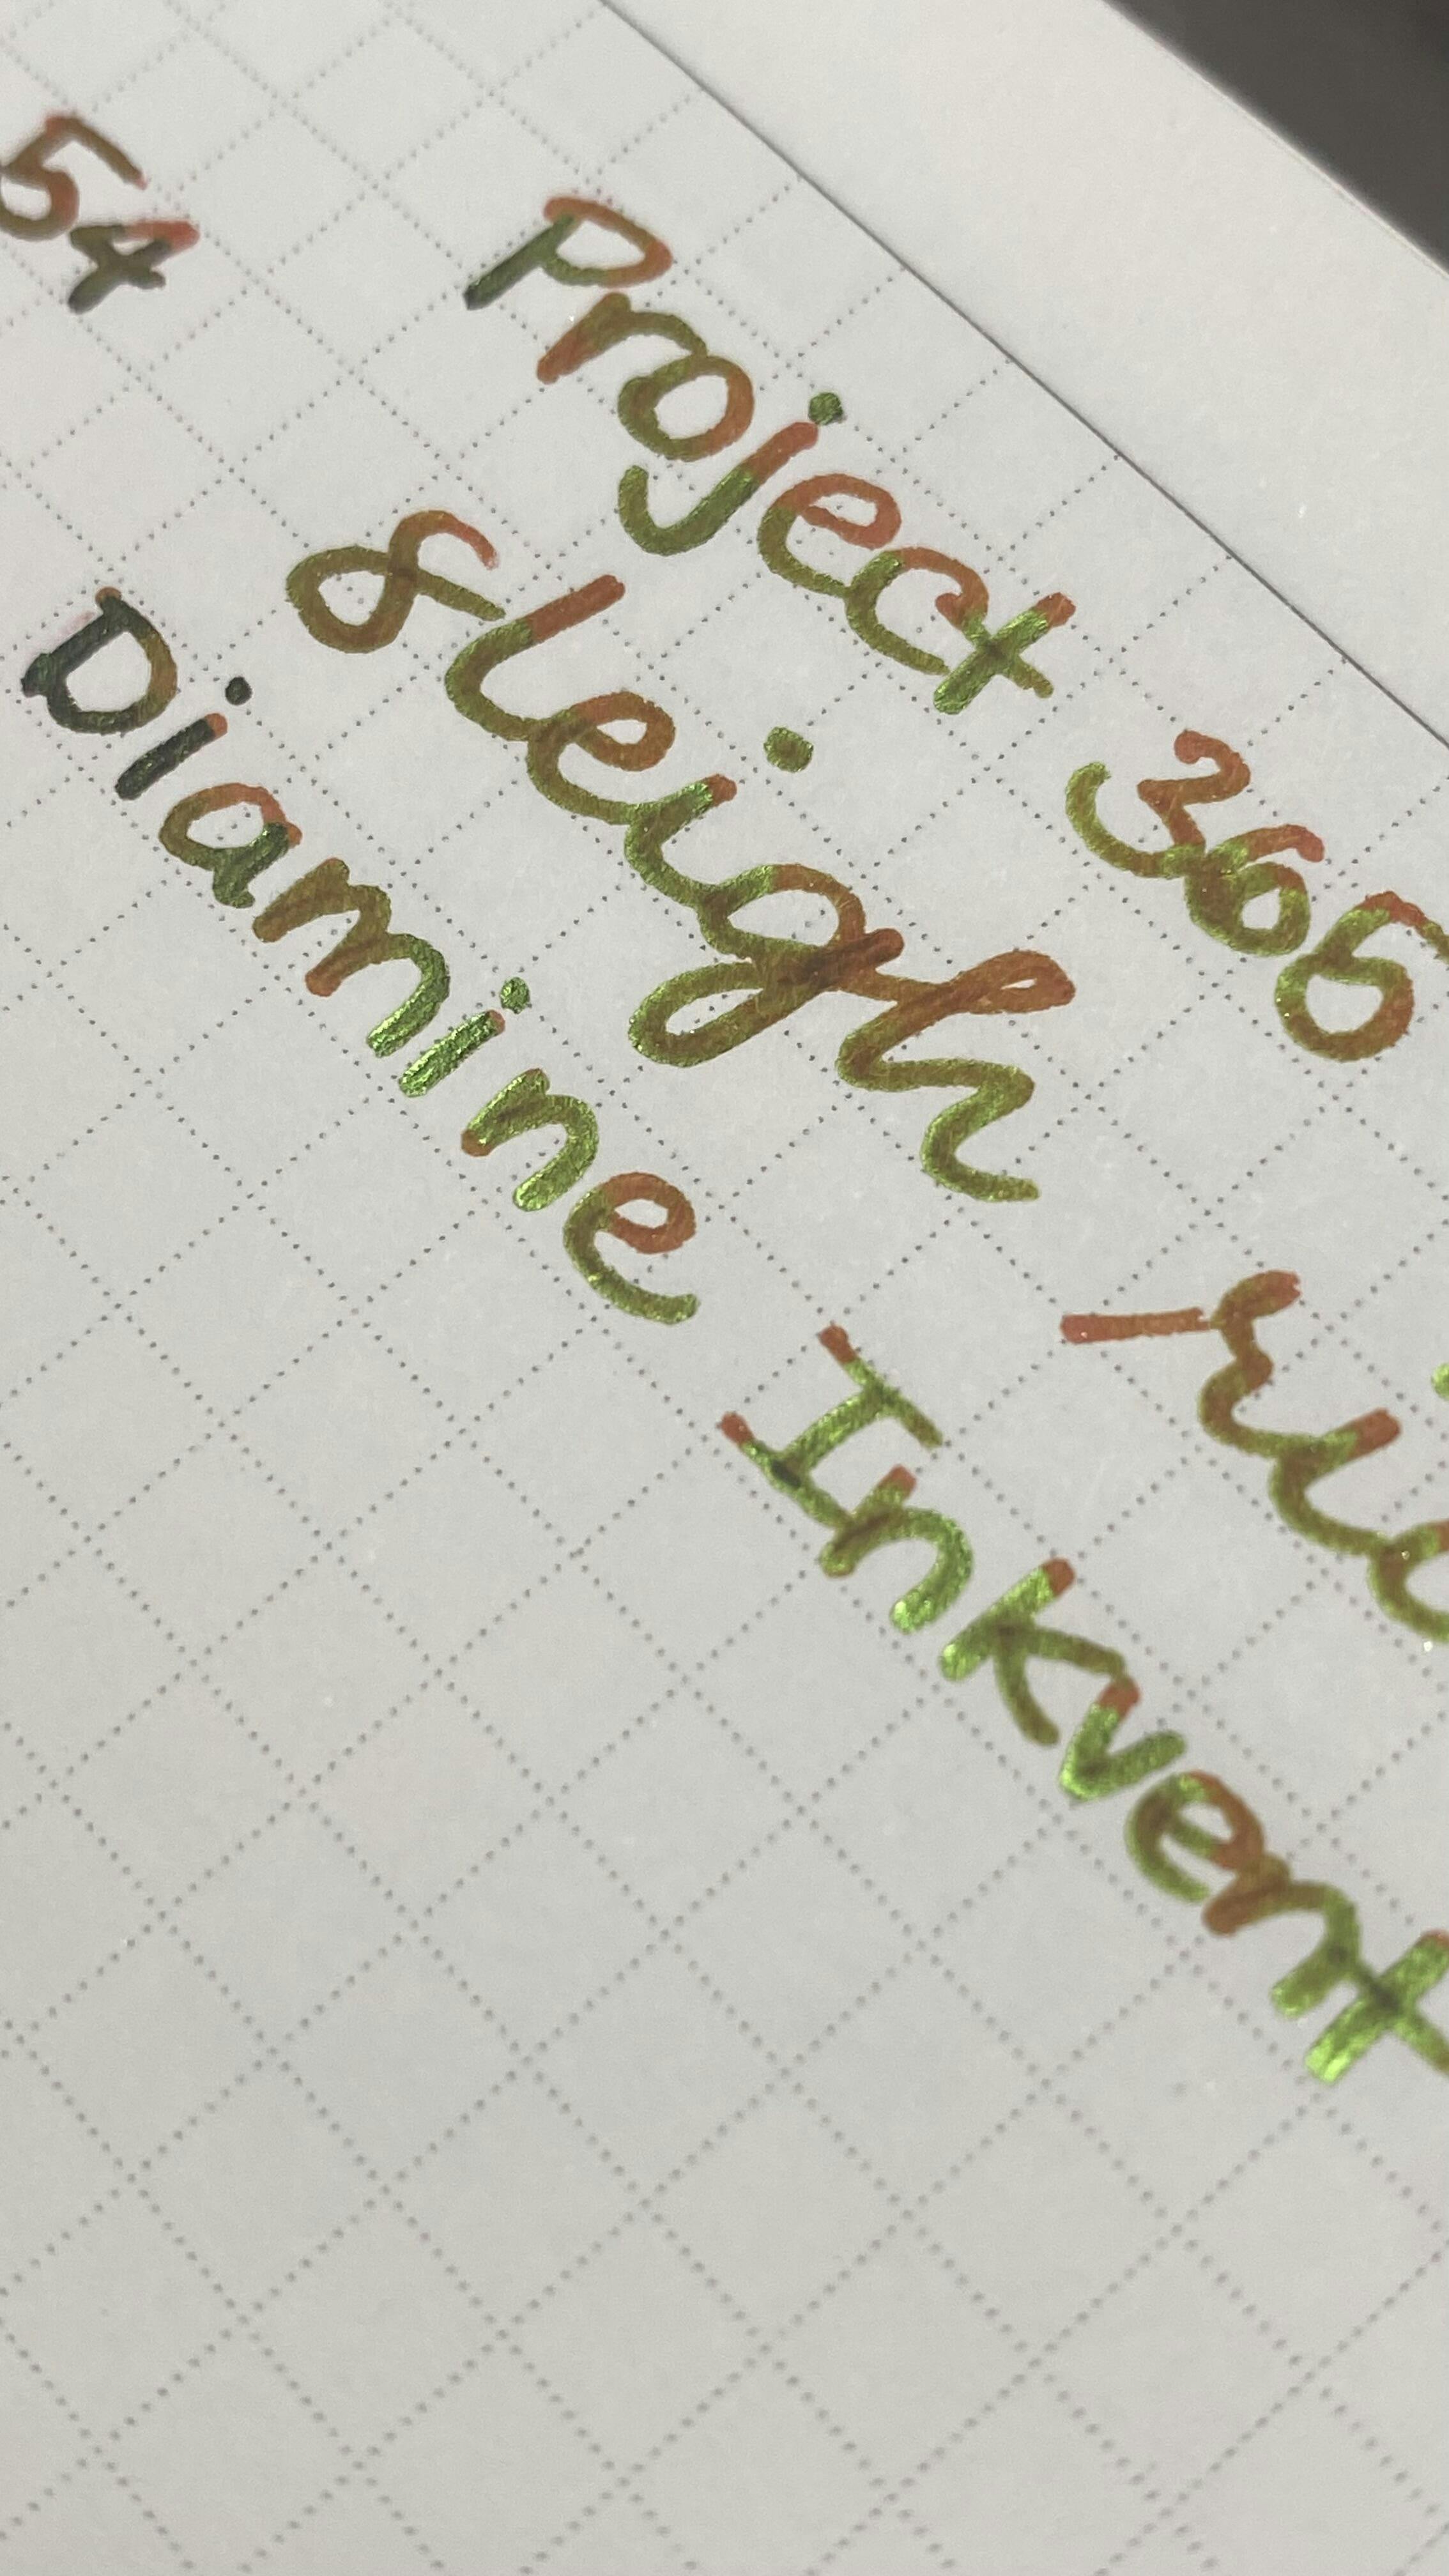 54
Project 365
Sleigh
Diamine Inkvent